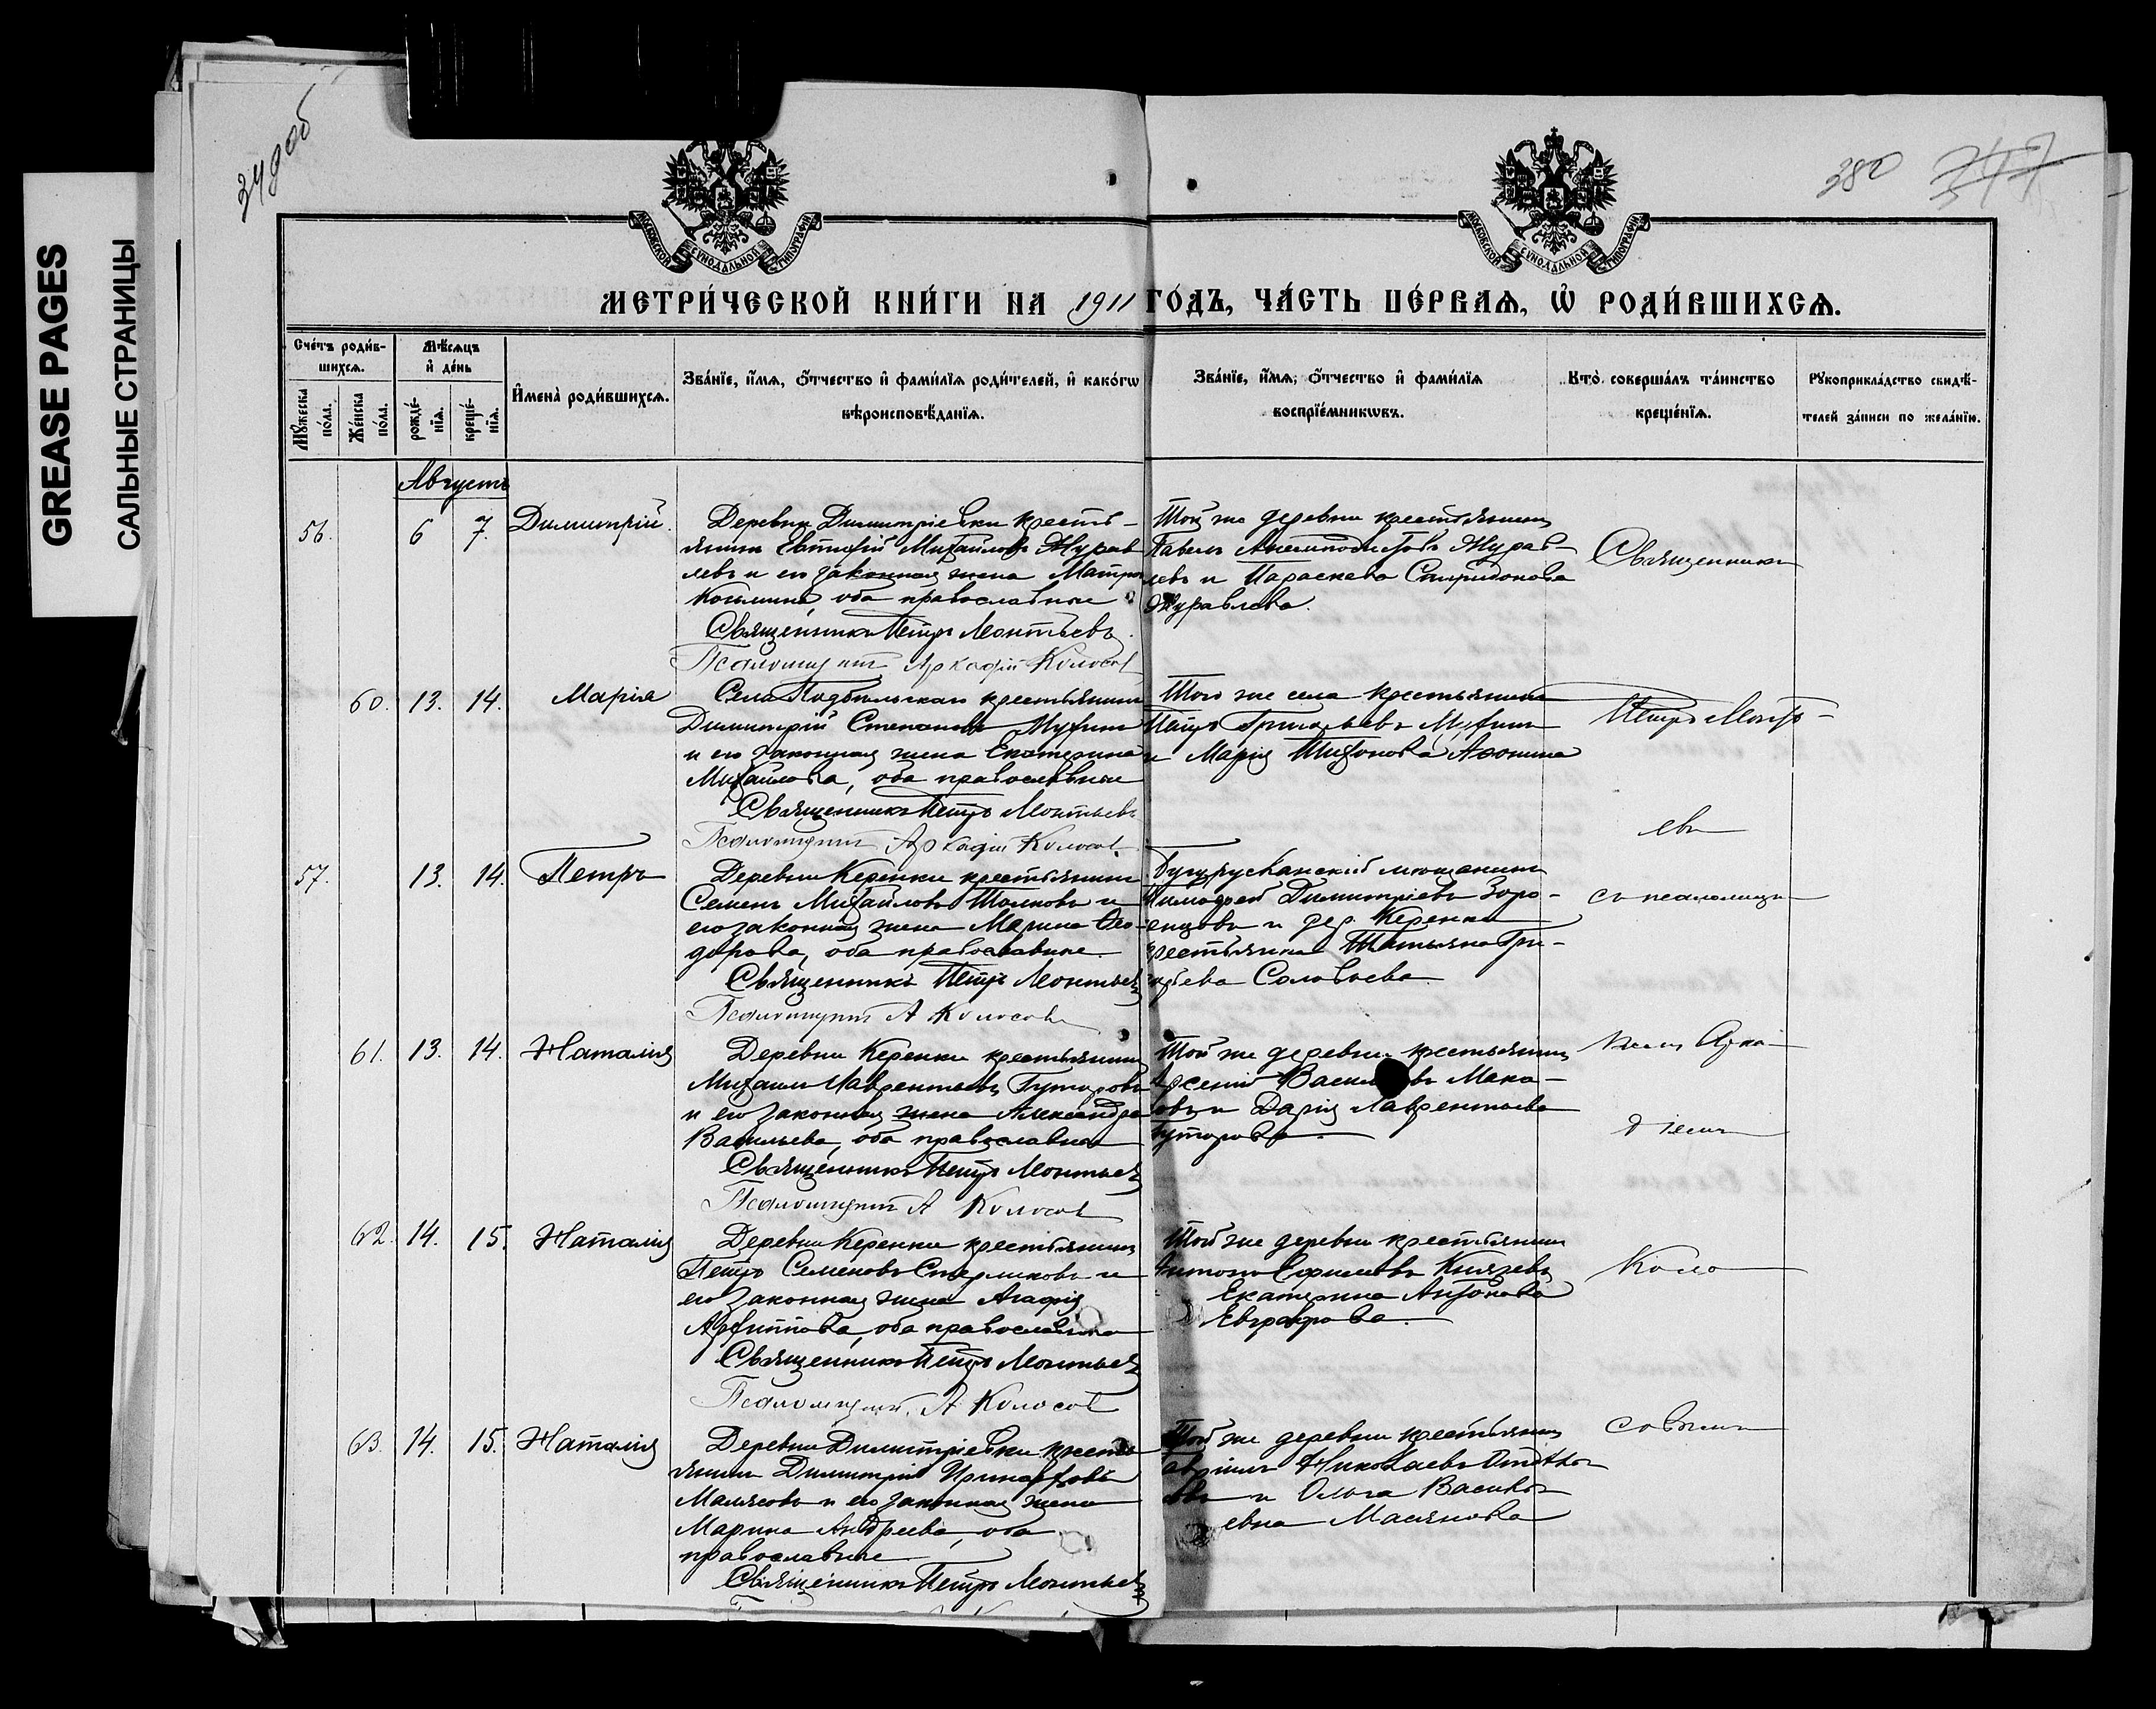 GREASE PAGES
САЛЬНЫЕ СТРАНИЦЫ
380
МЕТРИ́ЧЕСКОЙ КНИ́ГИ НА 1911 ГО́ДЪ, ЧА́СТЬ ПЕ́РВАѦ, Ѡ҆ РОДИ́ВШИХСѦ.
Сче́тъ роди́в-
шихсѧ.
Мꙋ́жеска по́ла.
Же́нска по́ла.
Мѣ́сѧцъ
и҆ де́нь
рожде́-
нїѧ.
креще́-
нїѧ.
И҆мена̀ роди́вшихсѧ.
Зва́нїе, и҆́мѧ, ѻ҆́тчество и҆ фами́лїѧ роди́телей, и҆ како́гѡ
вѣроисповѣ́данїѧ.
Зва́нїе, и҆́мѧ, ѻ҆́тчество и҆ фами́лїѧ
воспрїе́мникѡвъ.
Кто̀ соверша́лъ та́инство
креще́нїѧ.
Рꙋкоприкла́дство свидѣ́-
телей за́писи по жела́нїю.
Августъ
56. 6 7. Димитрій.
Деревни Димитріевки кресть-
янинъ Евтихій Михайловъ Журав
левъ и его законная жена Матрона
Козьмина, оба православные
Священникъ Петръ Леонтьевъ.
Псаломщикъ Аркадій Колосовъ
Той же деревни крестьянинъ
Павелъ Журав-
левъ и Параскева Спиридонова
Журавлева.
Священникъ
60. 13. 14. Марія
Села Подбѣльскаго крестьянинъ
Димитрій Степановъ Мухинъ
и его законная жена Екатерина
Михайлова, оба православные
Священникъ Петръ Леонтьевъ
Псаломщикъ Аркадій Колосовъ
Того же села крестьянинъ
Петръ Григорьевъ Мухинъ
и Марія Тихонова Афонина
Петръ Леонть-
евъ
57. 13. 14. Петръ
Деревни Керенки крестьянинъ
Семенъ Михайловъ Толковъ и
его законная жена Марина Ѳео-
дорова, оба православные.
Священникъ Петръ Леонтьевъ
Псаломщикъ А Колосовъ
Бугурусланскій мѣщанинъ
Тимофей Димитріевъ
и дер. Керенки
крестьянка Татьяна Гри-
горьева Соловьева.
съ псаломщи-
61. 13. 14. Наталія
Деревни Керенки крестьянинъ
Михаилъ Лаврентьевъ Гуторовъ
и его законная жена Александра
Васильева, оба православные
Священникъ Петръ Леонтьевъ
Псаломщикъ А Колосовъ
Той же деревни крестьянинъ
Арсеній Мака-
ровъ и Дарія Лаврентьева
Гуторова.
комъ Арка-
діемъ
62. 14. 15. Наталія
Деревни Керенки крестьянинъ
Петръ Семеновъ и
его законная жена Агафія
Архиппова, оба православные
Священникъ Петръ Леонтьевъ
Псаломщикъ А Колосовъ
Той же деревни крестьянинъ
Антонъ Ефимовъ Князевъ
Екатерина Антонова
Коло-
63. 14. 15. Наталія
Деревни Димитріевки кресть
янинъ Димитрій Принарховъ
Малясовъ и его законная жена
Марина Андреева, оба
православные
Священникъ Петръ Леонтьевъ
Той же деревни крестьянинъ
Николаевъ
и Ольга Василь-
евна
совымъ